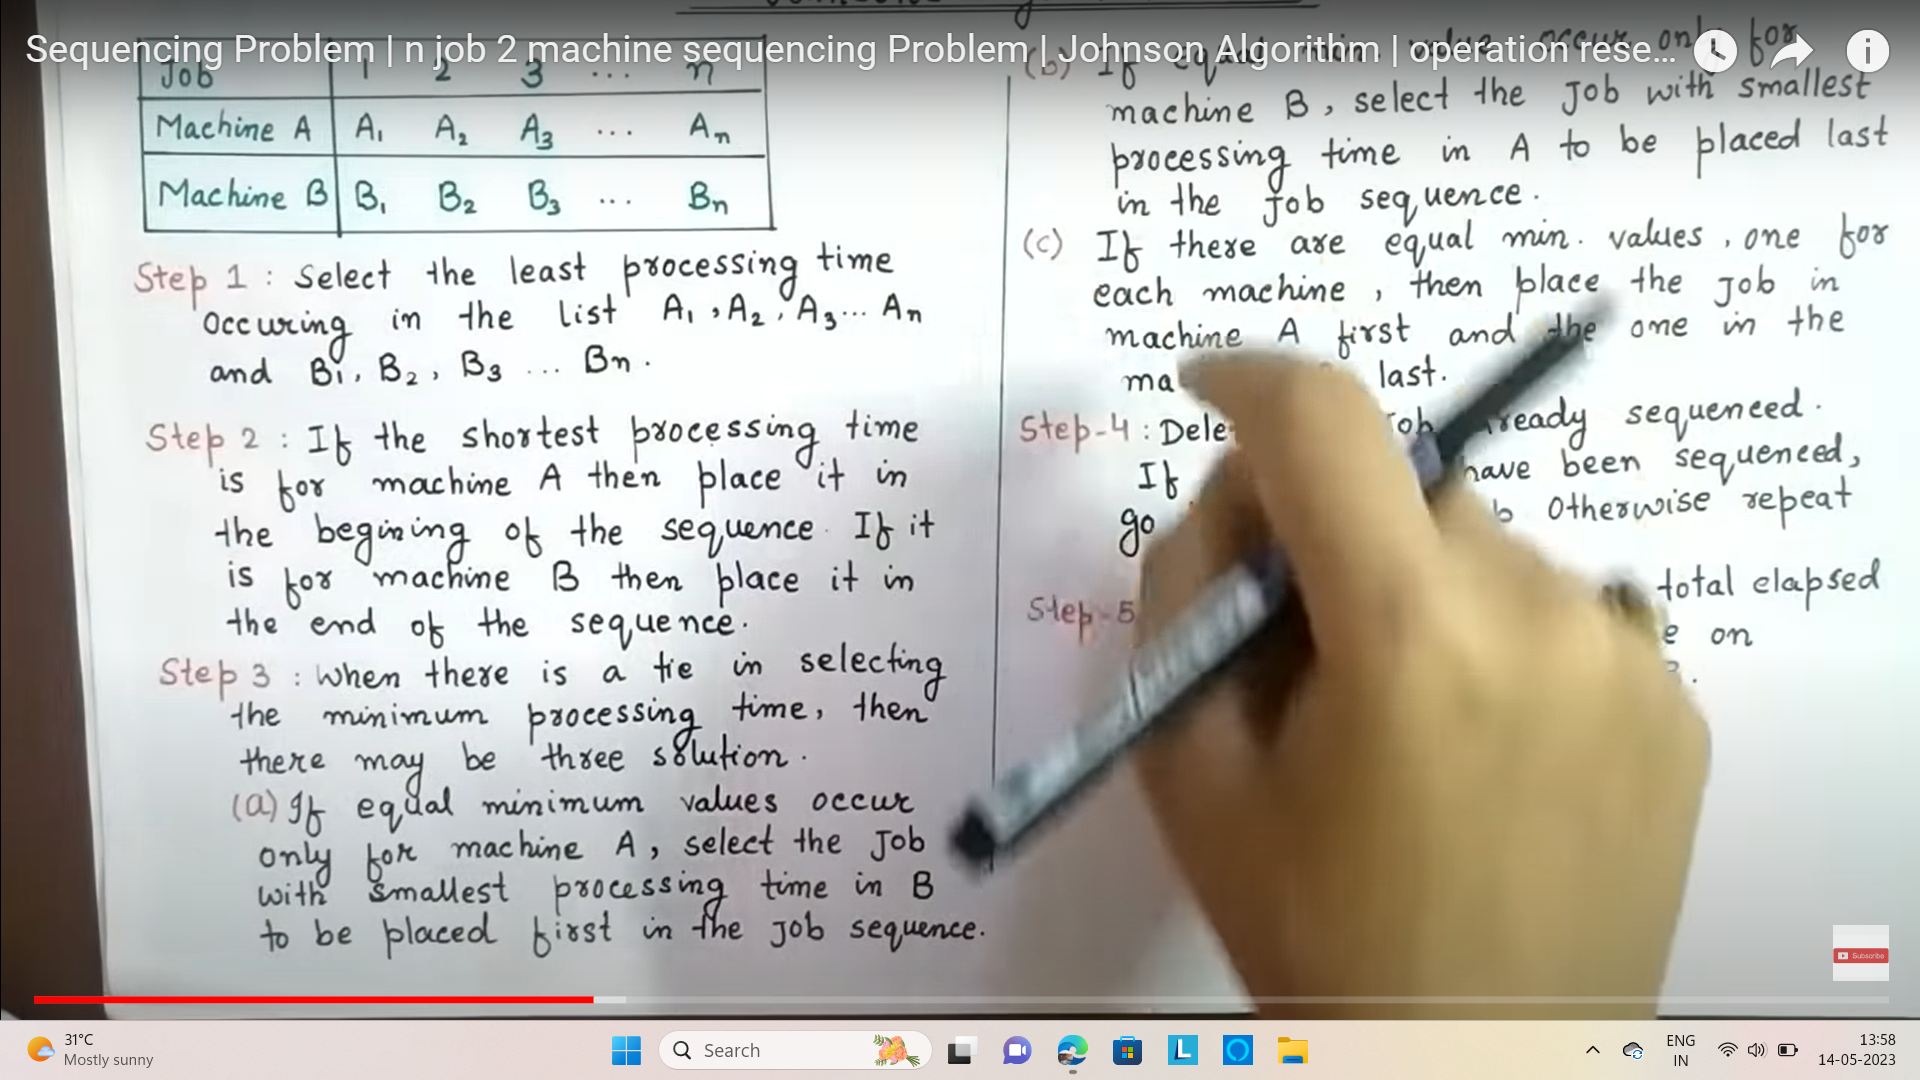 Sequencing Problem | n job 2 machine sequencing Problem | Johnson Algorithim | operation rese...
Job 1 2 3 ... n
Machine A A1 A2 A3 ... An
Machine B B1 B2 B3 ... Bn
Step 1 : Select the least processing time
occuring in the list A1, A2, A3... An
and B1, B2, B3 ... Bn.
Step 2 : If the shortest processing time
is for machine A then place it in
the begining of the sequence. If it
is for machine B then place it in
the end of the sequence.
Step 3 : When there is a tie in selecting
the minimum processing time, then
there may be three solution.
(a) If equal minimum values occur
only for machine A, select the Job
with smallest processing time in B
to be placed first in the Job sequence.
(b) If equal value occur only for
machine B, select the Job with smallest
processing time in A to be placed last
in the Job sequence.
(c) If there are equal min. values, one for
each machine, then place the Job in
machine A first and the one in the
last.
Step-4 : already sequenced.
If have been sequenced,
go Otherwise repeat
Step-5 total elapsed
on
Subscribe
31°C
Mostly sunny
Search
ENG
IN
13:58
14-05-2023